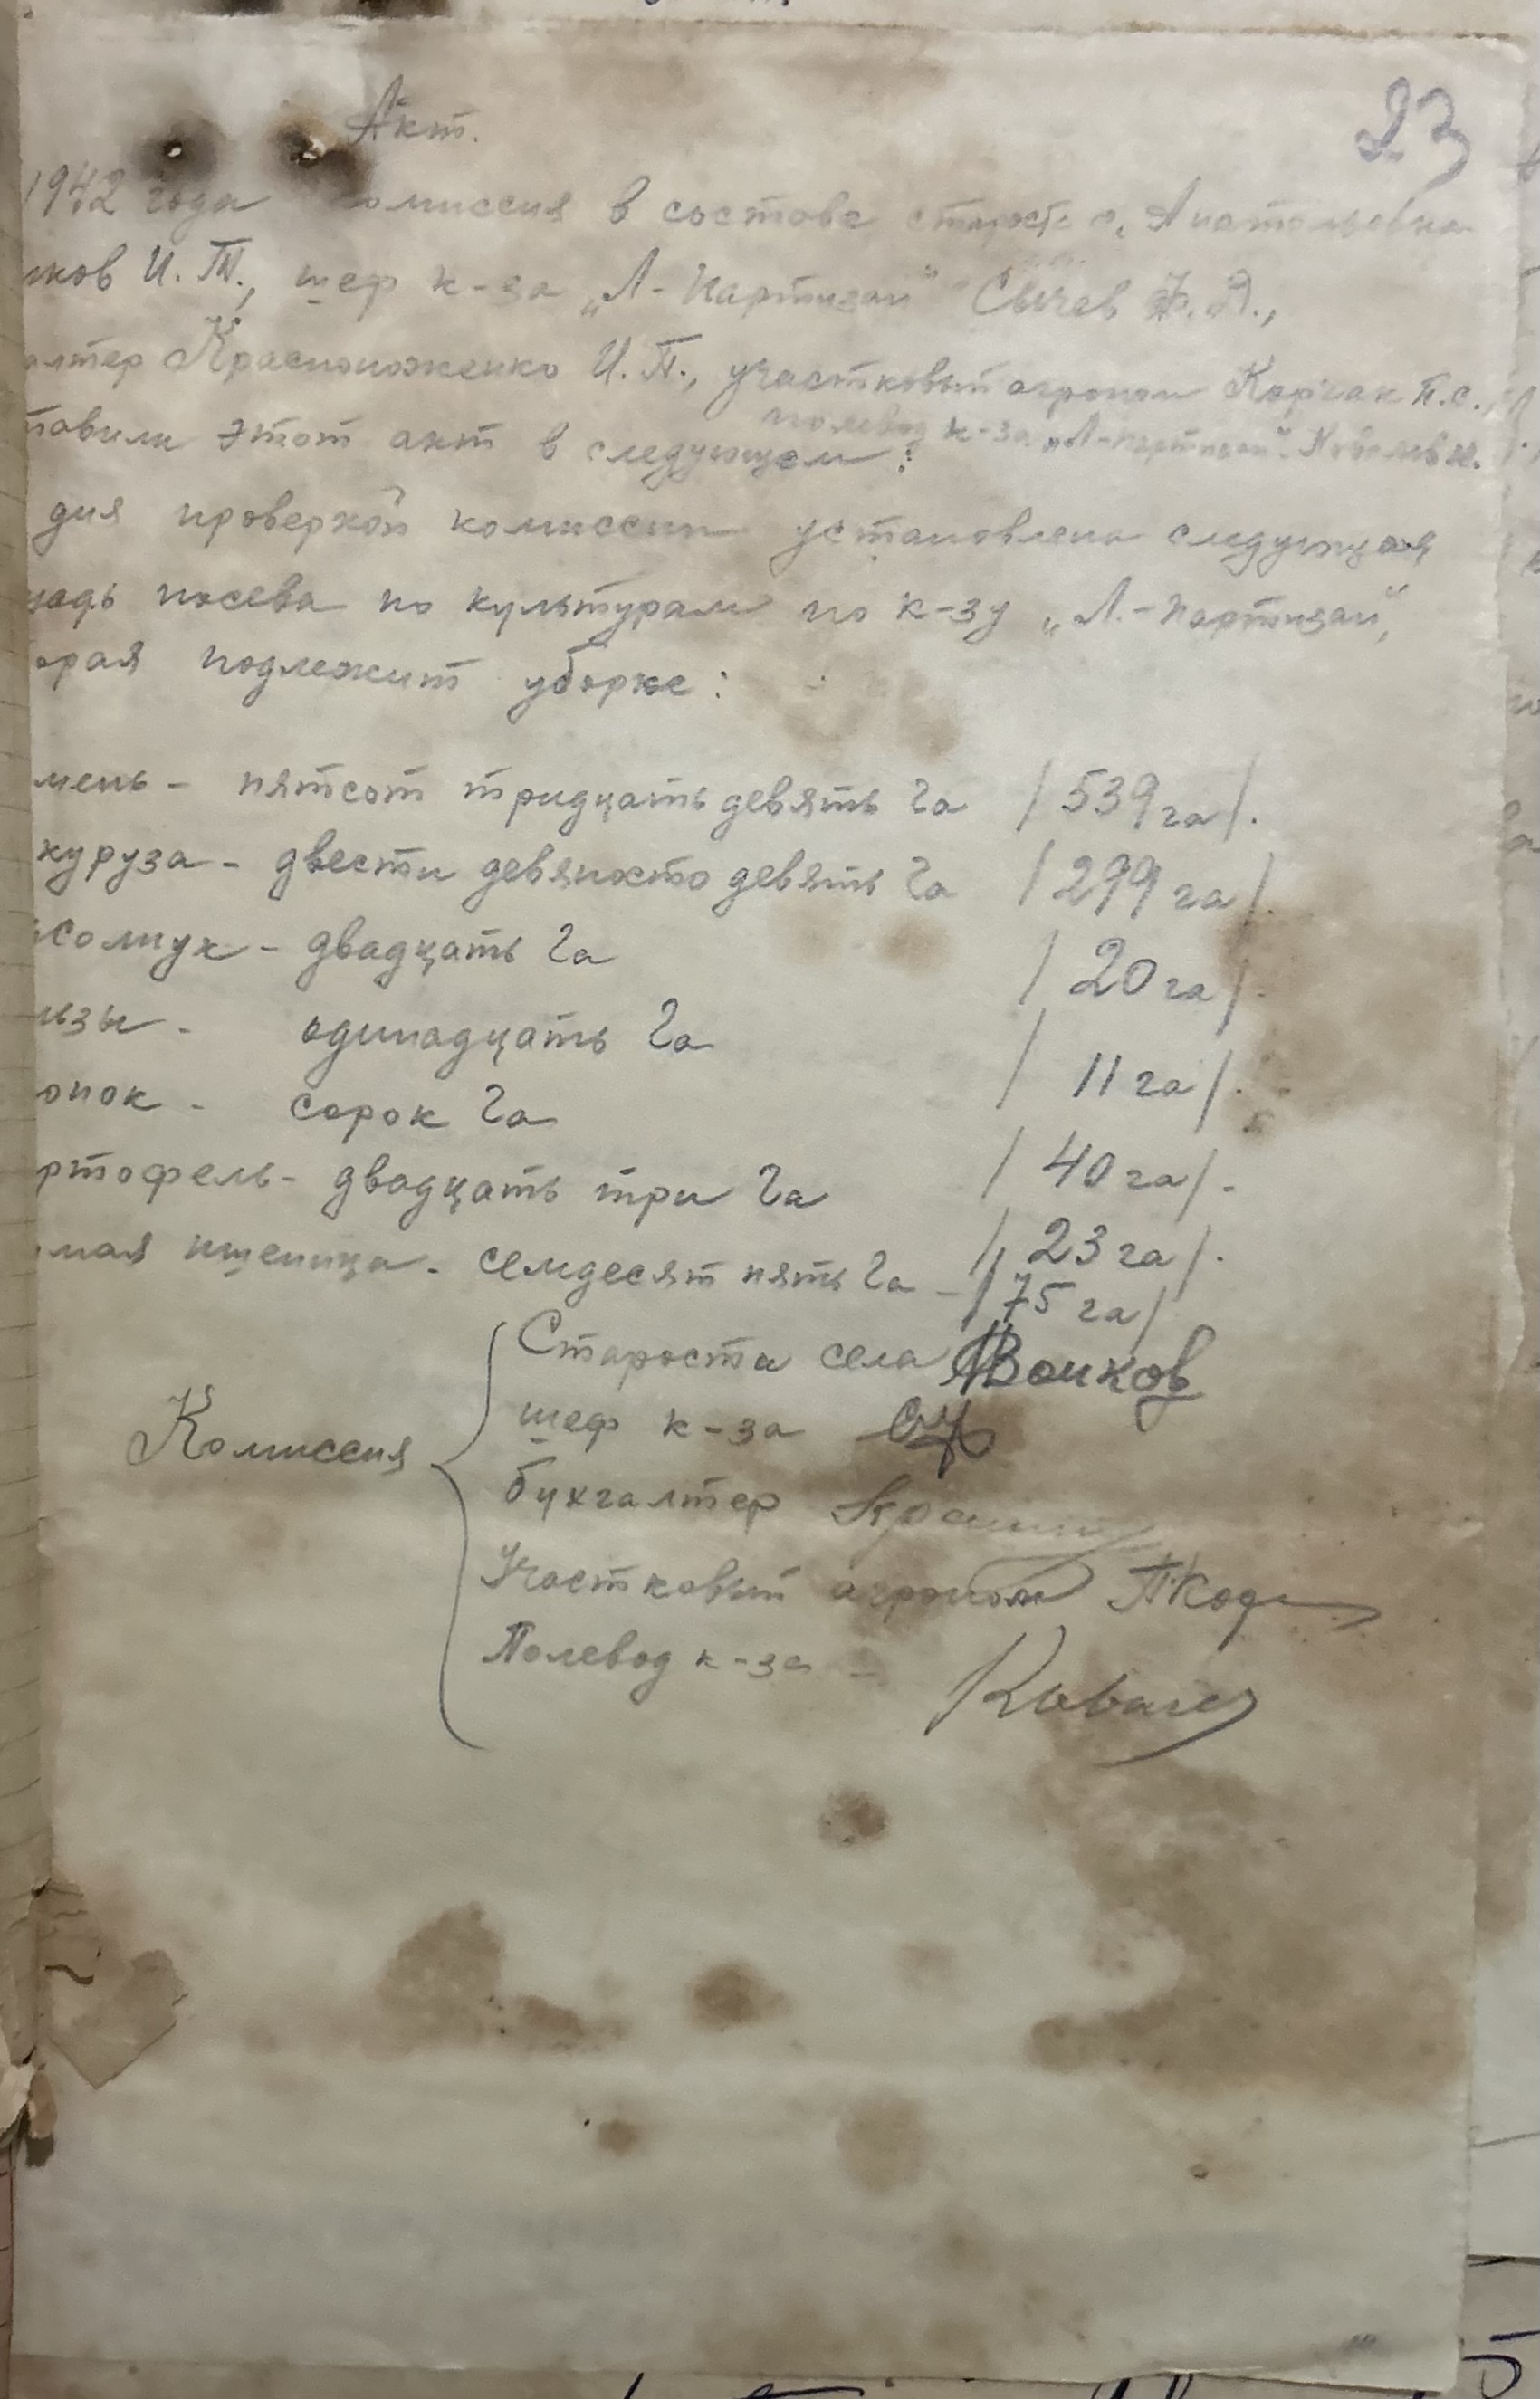 23
Акт.
1942 года комиссия в составе старосте с. Анатольевка
иков И. Т., шеф к-за „Л-Партизан" Сычев Ф. Д.,
алтер Красноноженко И. П., участковый агроном Корчак П. С.,
полевод к-за „Л-партизан" Ковалев И.
тавили этот акт в следующем:
дня проверкой комиссии установлена следующая
щадь посева по культурам по к-зу „Л.-Партизан",
орая подлежит уборке:
мень - пятсот тридцать девять га /539 га/.
куруза - двести девяносто девять га /299 га/.
солнук - двадцать га /20 га/.
ьзы - одинадцать га /11 га/.
опок - сорок га /40 га/.
ртофель - двадцать три га /23 га/.
мая пшеница - семдесят пять га - /75 га/
Комиссия
Староста села Воиков
шеф к-за
бухгалтер
Участковый агроном
Полевод к-за -